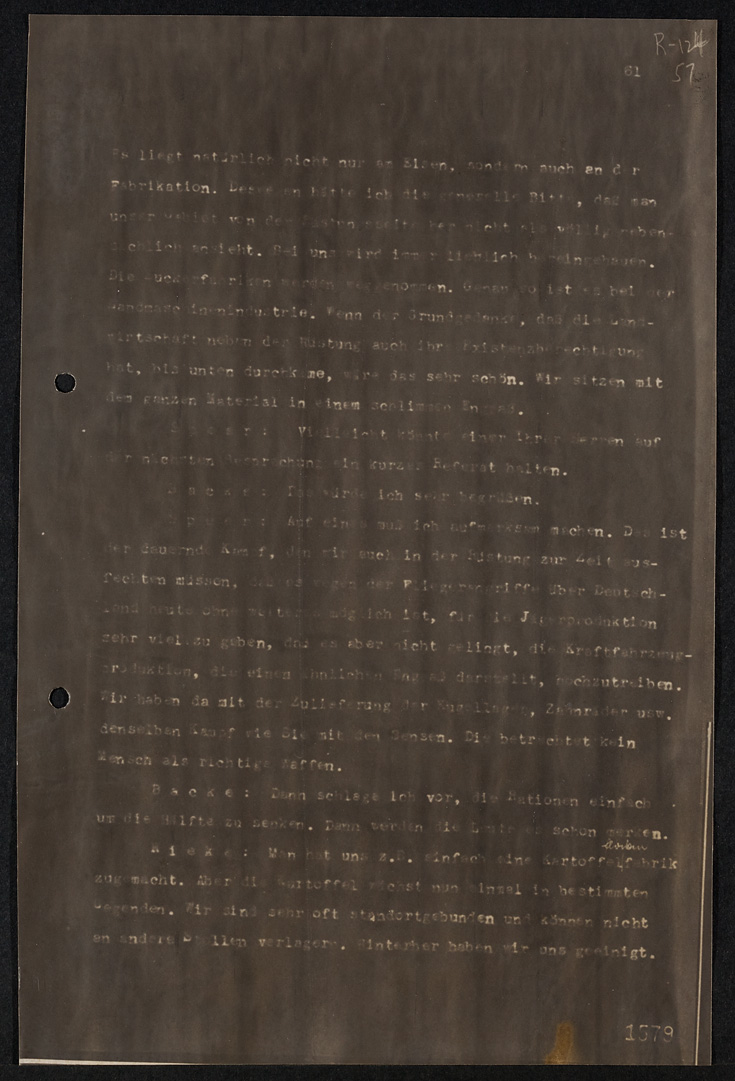 R-124
61 57
Es liegt natürlich nicht nur am Eisen, sondern auch an der
Fabrikation. Deswegen hätte ich die generelle Bitte, daß man
unser Gebiet von der Rüstungsseite her nicht als völlig neben-
sächlich ansieht. Bei uns wird immer lieblich hereingehauen.
Die Zuckerfabriken werden weggenommen. Genau so ist es bei der
Landmaschinenindustrie. Wenn der Grundgedanke, daß die Land-
wirtschaft neben der Rüstung auch ihre Existenzberechtigung
hat, bis unten durchkäme, wäre das sehr schön. Wir sitzen mit
dem ganzen Material in einem schlimmen Engpaß.
Speer: Vielleicht könnte einer Ihrer Herren auf
der nächsten Besprechung ein kurzes Referat halten.
Backe: Das würde ich sehr begrüßen.
Speer: Auf eines muß ich aufmerksam machen. Das ist
der dauernde Kampf, den wir auch in der Rüstung zur Zeit aus-
fechten müssen, daß es wegen der Fliegerangriffe über Deutsch-
land heute ohne weiteres möglich ist, für die Jägerproduktion
sehr viel zu geben, daß es aber nicht gelingt, die Kraftfahrzeug-
produktion, die einen ähnlichen Engpaß darstellt, hochzutreiben.
Wir haben da mit der Zulieferung der Kugellager, Zahnräder usw.
denselben Kampf wie Sie mit den Sensen. Die betrachtet kein
Mensch als richtige Waffen.
Backe: Dann schlage ich vor, die Rationen einfach
um die Hälfte zu senken. Dann werden die Leute es schon merken.
Riecke: Man hat uns z.B. einfach eine Kartoffelfabrik
zugemacht. Aber die Kartoffel wächst nun einmal in bestimmten
Gegenden. Wir sind sehr oft standortgebunden und können nicht
an andere Stellen verlagern. Hinterher haben wir uns geeinigt.
1579